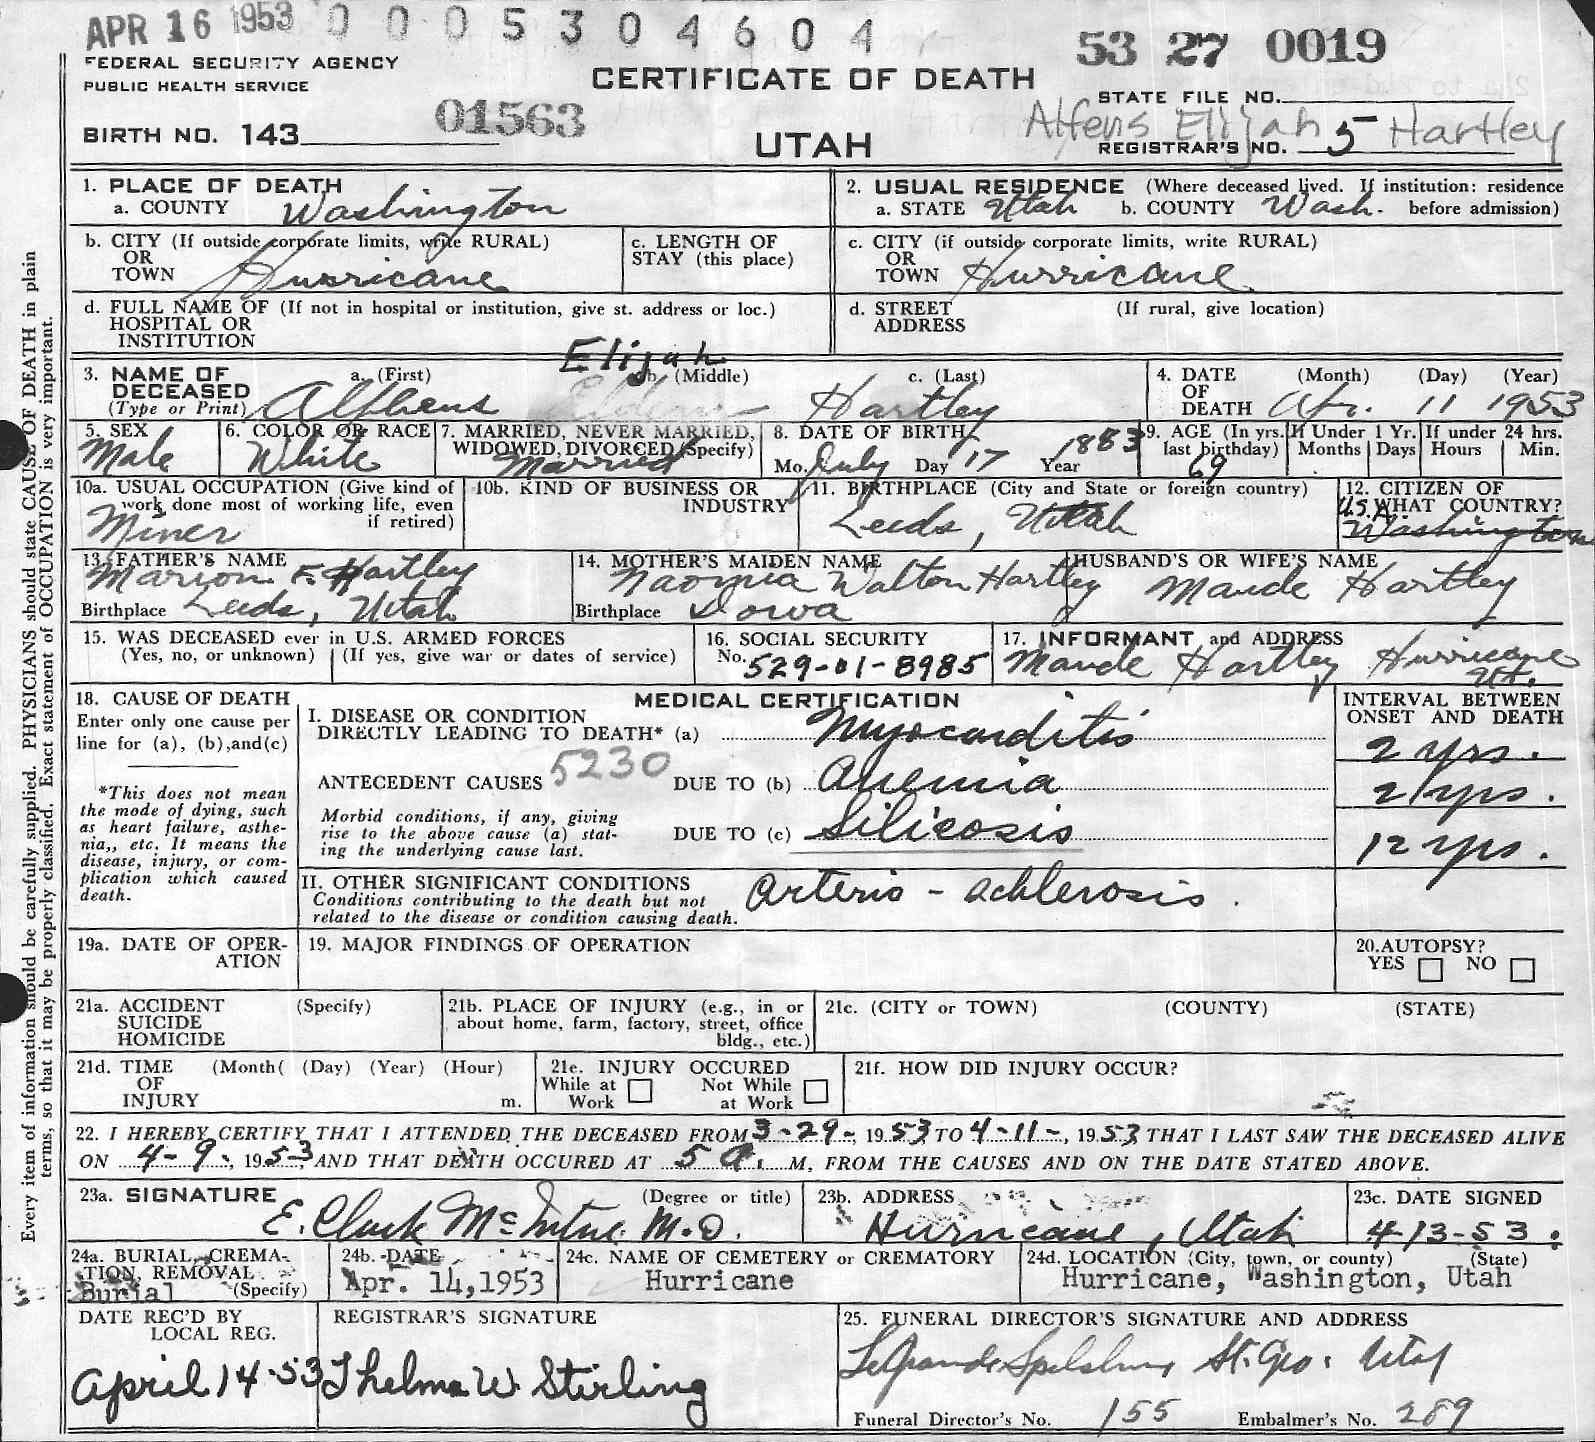 APR 16 1953 0 0 0 5 3 0 4 6 0 4
53 27 0019
FEDERAL SECURITY AGENCY
PUBLIC HEALTH SERVICE
CERTIFICATE OF DEATH
STATE FILE NO.
01563
Alfens Elijah Hartley
BIRTH NO. 143
UTAH
REGISTRAR'S NO. 5
1. PLACE OF DEATH
a. COUNTY Washington
2. USUAL RESIDENCE (Where deceased lived. If institution: residence
a. STATE Utah b. COUNTY Wash. before admission)
b. CITY (If outside corporate limits, write RURAL)
OR
TOWN Hurricane
c. LENGTH OF
STAY (this place)
c. CITY (if outside corporate limits, write RURAL)
OR
TOWN Hurricane
d. FULL NAME OF (If not in hospital or institution, give st. address or loc.)
HOSPITAL OR
INSTITUTION
d. STREET (If rural, give location)
ADDRESS
Elijah
3. NAME OF a. (First) b. (Middle) c. (Last)
DECEASED
(Type or Print) Alpheus Hartley
4. DATE (Month) (Day) (Year)
OF
DEATH Apr. 11 1953
5. SEX
Male
6. COLOR OR RACE
White
7. MARRIED, NEVER MARRIED,
WIDOWED, DIVORCED (Specify)
Married
8. DATE OF BIRTH
Mo. July Day 17 Year 1883
9. AGE (In yrs.
last birthday)
69
If Under 1 Yr.
Months Days
If under 24 hrs.
Hours Min.
10a. USUAL OCCUPATION (Give kind of
work done most of working life, even
if retired)
Miner
10b. KIND OF BUSINESS OR
INDUSTRY
11. BIRTHPLACE (City and State or foreign country)
Leeds, Utah
12. CITIZEN OF
U.S.A. WHAT COUNTRY?
Washington
13. FATHER'S NAME
Marion F. Hartley
Birthplace Leeds, Utah
14. MOTHER'S MAIDEN NAME
Naomia Walton Hartley
Birthplace Iowa
HUSBAND'S OR WIFE'S NAME
Maude Hartley
15. WAS DECEASED ever in U.S. ARMED FORCES
(Yes, no, or unknown) (If yes, give war or dates of service)
16. SOCIAL SECURITY
No. 529-01-8985
17. INFORMANT and ADDRESS
Maude Hartley Hurricane
Ut.
18. CAUSE OF DEATH
Enter only one cause per
line for (a), (b),and(c)
*This does not mean
the mode of dying, such
as heart failure, asthe-
nia,, etc. It means the
disease, injury, or com-
plication which caused
death.
MEDICAL CERTIFICATION
I. DISEASE OR CONDITION
DIRECTLY LEADING TO DEATH* (a) Myocarditis
ANTECEDENT CAUSES 5230 DUE TO (b) Anemia
Morbid conditions, if any, giving
rise to the above cause (a) stat-
ing the underlying cause last.
DUE TO (c) Silicosis
INTERVAL BETWEEN
ONSET AND DEATH
2 yrs.
2 yrs.
12 yrs.
II. OTHER SIGNIFICANT CONDITIONS
Conditions contributing to the death but not
related to the disease or condition causing death.
Arterio - schlerosis.
19a. DATE OF OPER-
ATION
19. MAJOR FINDINGS OF OPERATION
20.AUTOPSY?
YES NO
21a. ACCIDENT (Specify)
SUICIDE
HOMICIDE
21b. PLACE OF INJURY (e.g., in or
about home, farm, factory, street, office
bldg., etc.)
21c. (CITY or TOWN) (COUNTY) (STATE)
21d. TIME (Month( (Day) (Year) (Hour)
OF
INJURY m.
21e. INJURY OCCURED
While at Not While
Work at Work
21f. HOW DID INJURY OCCUR?
22. I HEREBY CERTIFY THAT I ATTENDED THE DECEASED FROM 3-29-, 1953, TO 4-11-, 1953, THAT I LAST SAW THE DECEASED ALIVE
ON 4-9-, 1953 AND THAT DEATH OCCURED AT 5 a. M, FROM THE CAUSES AND ON THE DATE STATED ABOVE.
23a. SIGNATURE (Degree or title)
E. Clark McIntire M.D.
23b. ADDRESS
Hurricane, Utah
23c. DATE SIGNED
4-13-53.
24a. BURIAL, CREMA-
TION, REMOVAL
Burial (Specify)
24b. DATE
Apr. 14,1953
24c. NAME OF CEMETERY or CREMATORY
Hurricane
24d. LOCATION (City, town, or county) (State)
Hurricane, Washington, Utah
DATE REC'D BY
LOCAL REG.
April 14-53
REGISTRAR'S SIGNATURE
Thelma W. Stirling
25. FUNERAL DIRECTOR'S SIGNATURE AND ADDRESS
LeGrande Spilsbury St. Geo. Utah
Funeral Director's No. 155 Embalmer's No. 289
Every item of information should be carefully supplied. PHYSICIANS should state CAUSE OF DEATH in plain
terms, so that it may be properly classified. Exact statement of OCCUPATION is very important.